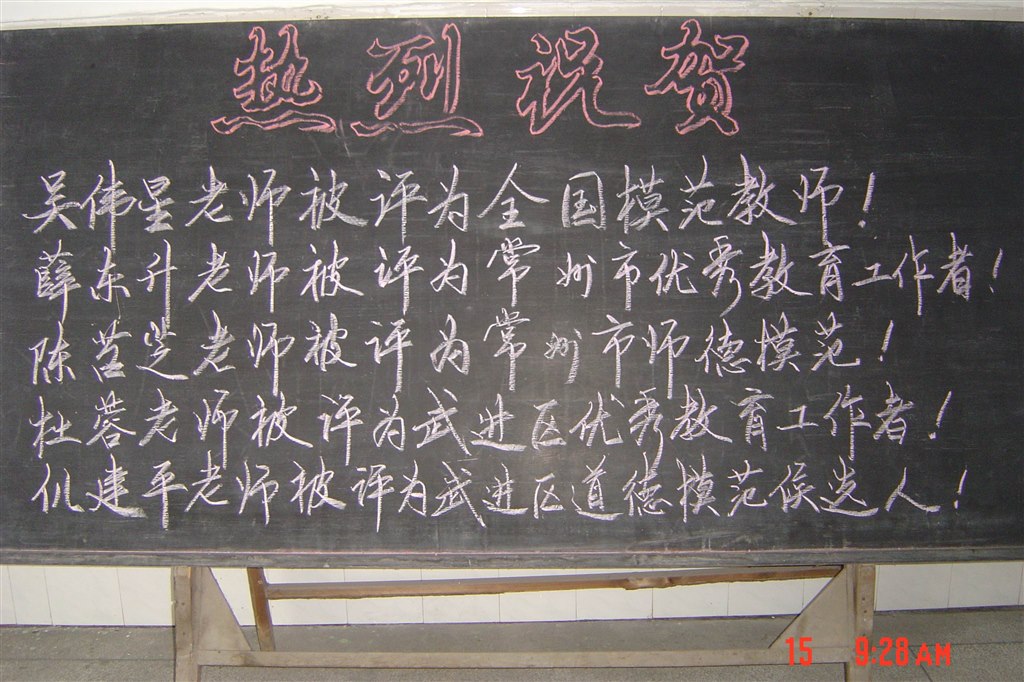 热烈祝贺
吴伟星老师被评为全国模范教师！
薛东升老师被评为常州市优秀教育工作者！
陈苕芝老师被评为常州市师德模范！
杜蓉老师被评为武进区优秀教育工作者！
仉建平老师被评为武进区道德模范候选人！
15 9:28 AM